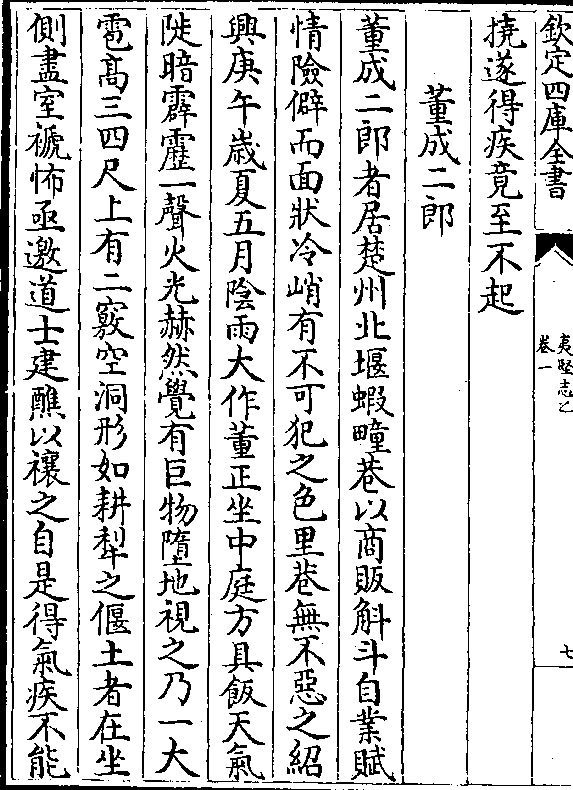 欽定四庫全書
夷堅志乙
卷一
七
撓遂得疾竟至不起
董成二郎
董成二郎者居楚州北堰蝦疃巷以商販斛斗自業賦
情險僻而面狀冷峭有不可犯之色里巷無不惡之紹
興庚午歲夏五月陰雨大作董正坐中庭方具飯天氣
陡暗霹靂一聲火光赫然覺有巨物墮地視之乃一大
雹高三四尺上有二竅空洞形如耕犁之偃土者在坐
側盡室褫怖亟邀道士建醮以禳之自是得氣疾不能